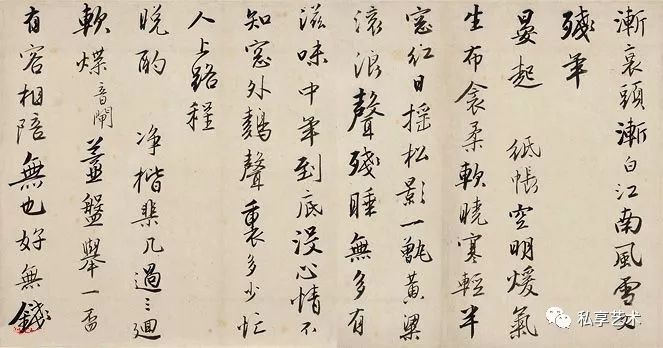 漸衰頭漸白江南風雪又
殘年
晏起 紙帳空明煖氣
生布衾柔軟曉寒輕半
窓紅日摇松影一甑黄粱
滚浪聲殘睡無多有
滋味中年到底没心情不
知窓外鷄聲裏多少忙
人上路程
晚酌 净楷棐几過三迴
軟煠音閘薑盤舉一盃
有客相陪無也好無錢
私享艺术